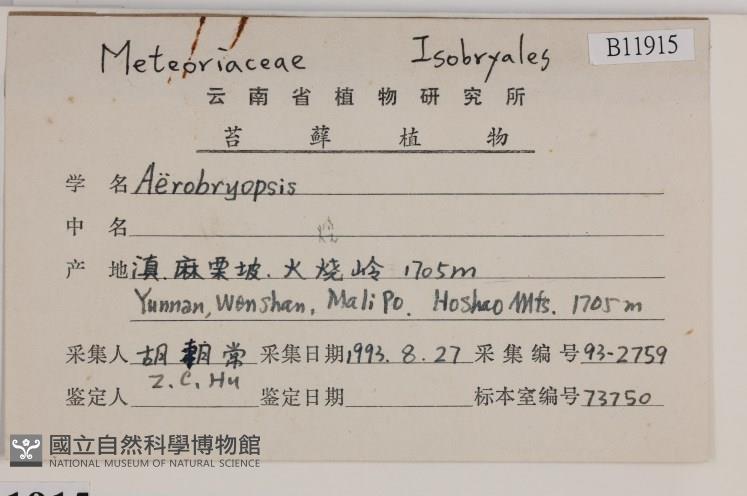 Meteoriaceae Isobryales B11915
云南省植物研究所
苔藓植物
学名 Aërobryopsis
中名
产地 滇.麻栗坡.火烧岭 1705m
Yunnan, Wenshan, Mali Po. Hoshao Mts. 1705m
采集人 胡朝棠 采集日期 1993.8.27 采集编号 93-2759
Z.C. Hu
鉴定人 鉴定日期 标本室编号 73750
國立自然科學博物館
NATIONAL MUSEUM OF NATURAL SCIENCE